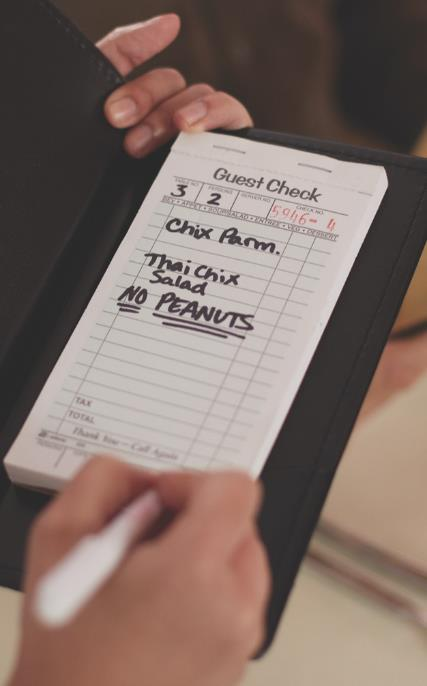 Guest Check
TABLE NO. PERSONS SERVER NO. CHECK NO.
3 2 5946- 4
BEV • APPET • SOUP/SALAD • ENTREE • VEG • DESSERT
Chix Parm.
Thai Chix
Salad
NO PEANUTS
TAX
TOTAL
Thank You — Call Again